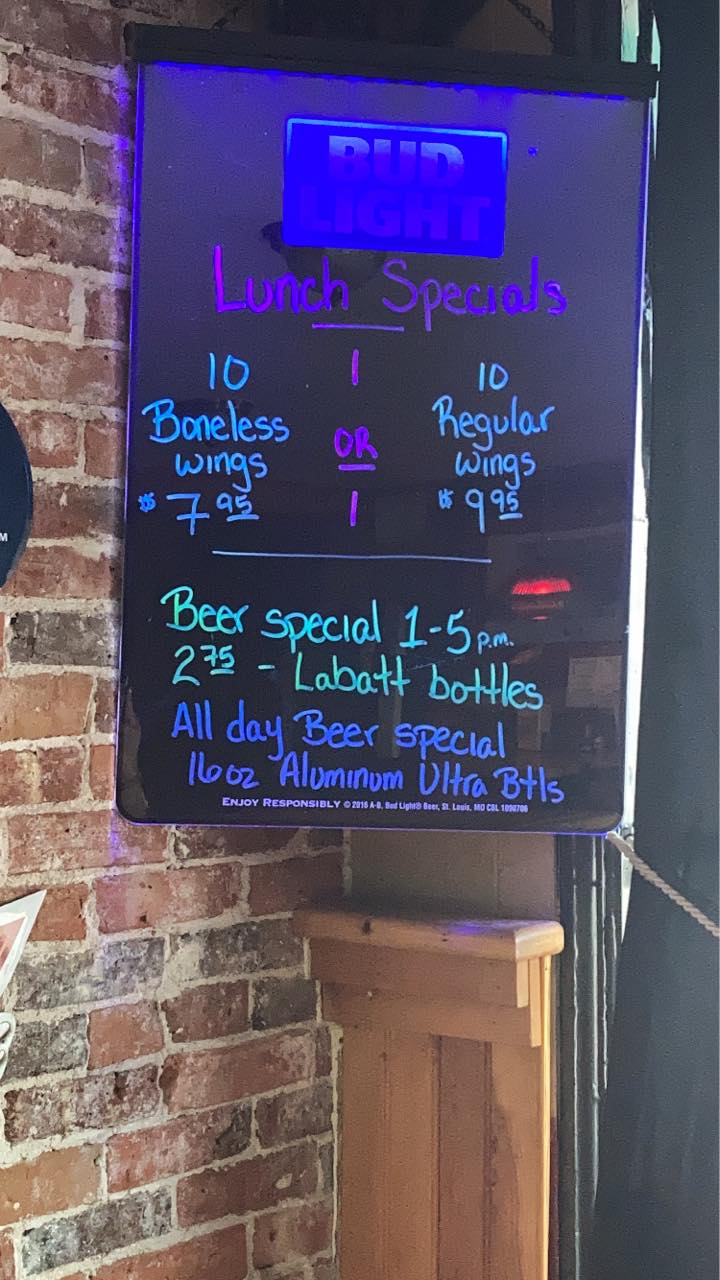 BUD
LIGHT
Lunch Specials
10
Boneless
wings
$7.95
OR
10
Regular
wings
$9.95
Beer special 1-5 p.m.
2.75 - Labatt bottles
All day Beer special
16oz Aluminum Ultra Btls
ENJOY RESPONSIBLY © 2016 A-B, Bud Light® Beer, St. Louis, MO CSL 1090706
M